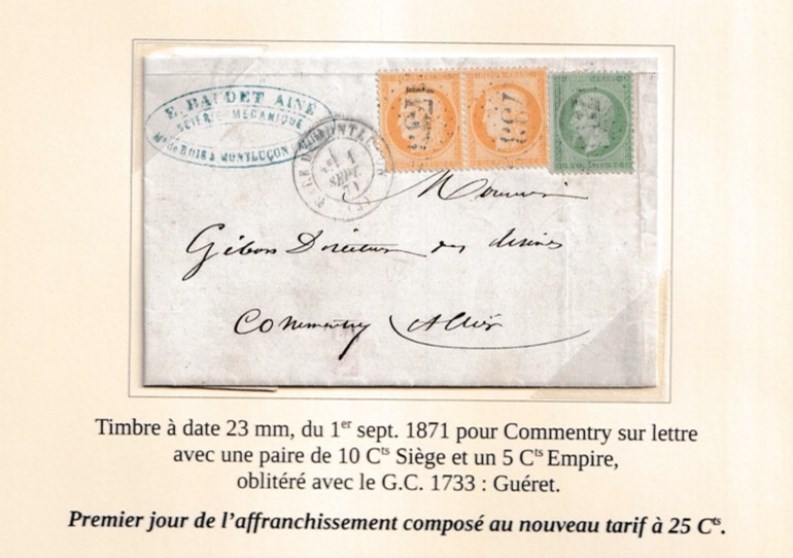 E. BAUDET AINÉ
SCIERIE MÉCANIQUE
Md de BOIS à MONTLUÇON
1
Monsieur
Gibon Directeur des Usines
Commentry Allier
Timbre à date 23 mm, du 1er sept. 1871 pour Commentry sur lettre
avec une paire de 10 Cts Siège et un 5 Cts Empire,
oblitéré avec le G.C. 1733 : Guéret.
Premier jour de l’affranchissement composé au nouveau tarif à 25 Cts.